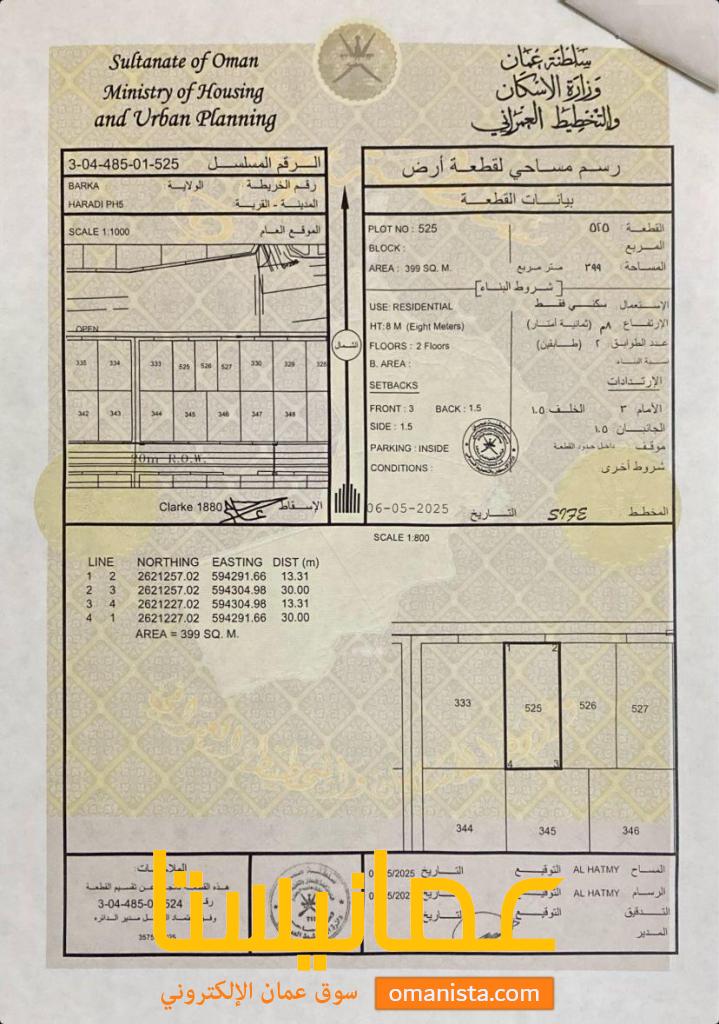 Sultanate of Oman
Ministry of Housing
and Urban Planning
سلطنة عمان
وزارة الإسكان
والتخطيط العمراني
3-04-485-01-525 الرقم المسلسل
BARKA الولاية رقم الخريطة
HARADI PH5 المدينة - القرية
SCALE 1:1000 الموقع العام
OPEN
335 334 333 525 526 527 330 329 328
342 343 344 345 346 347 348
20m R.O.W.
Clarke 1880 الإسقاط
الشمال
رسم مساحي لقطعة أرض
بيانات القطعة
PLOT NO : 525 القطعة : ٥٢٥
BLOCK : المربع
AREA : 399 SQ. M. المساحة : ٣٩٩ متر مربع
[شروط البناء]
USE: RESIDENTIAL الإستعمال سكني فقط
HT: 8 M (Eight Meters) الارتفاع ٨م (ثمانية أمتار)
FLOORS : 2 Floors عدد الطوابق ٢ (طابقين)
B. AREA : نسبة البناء
SETBACKS الإرتدادات
FRONT : 3 BACK : 1.5 الأمام ٣ الخلف ١.٥
SIDE : 1.5 الجانبان ١.٥
PARKING : INSIDE موقف داخل حدود القطعة
CONDITIONS : شروط أخرى
06-05-2025 التاريخ SIFE المخطط
SCALE 1:800
LINE NORTHING EASTING DIST (m)
1 2 2621257.02 594291.66 13.31
2 3 2621257.02 594304.98 30.00
3 4 2621227.02 594304.98 13.31
4 1 2621227.02 594291.66 30.00
AREA = 399 SQ. M.
1 2
333 525 526 527
4 3
344 345 346
الملاحظات:
هذه القطعة عن تقسيم القطعة
رقم 3-04-485-01-524
مدير الدائره
التاريخ التوقيع AL HATMY المساح
التاريخ التوقيع AL HATMY الرسام
التاريخ التوقيع التدقيق
المدير
عمانيستا
سوق عمان الإلكتروني
omanista.com